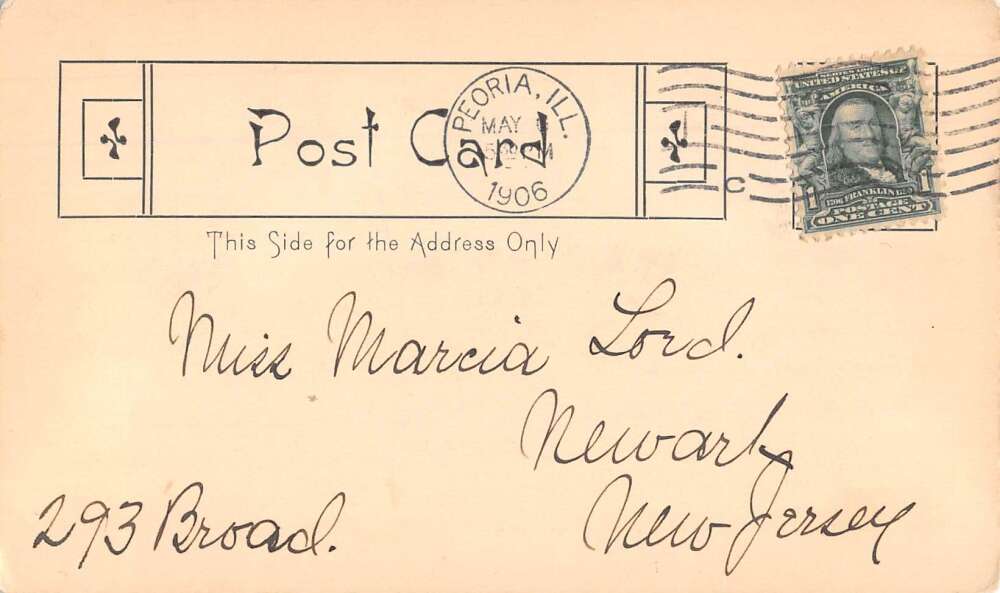 Post Card
PEORIA, ILL.
MAY
PM
1906
C
UNITED STATES OF
AMERICA
1 1
FRANKLIN
POSTAGE
ONE CENT
This Side for the Address Only
Miss Marcia Lord.
Newark
New Jersey
293 Broad.